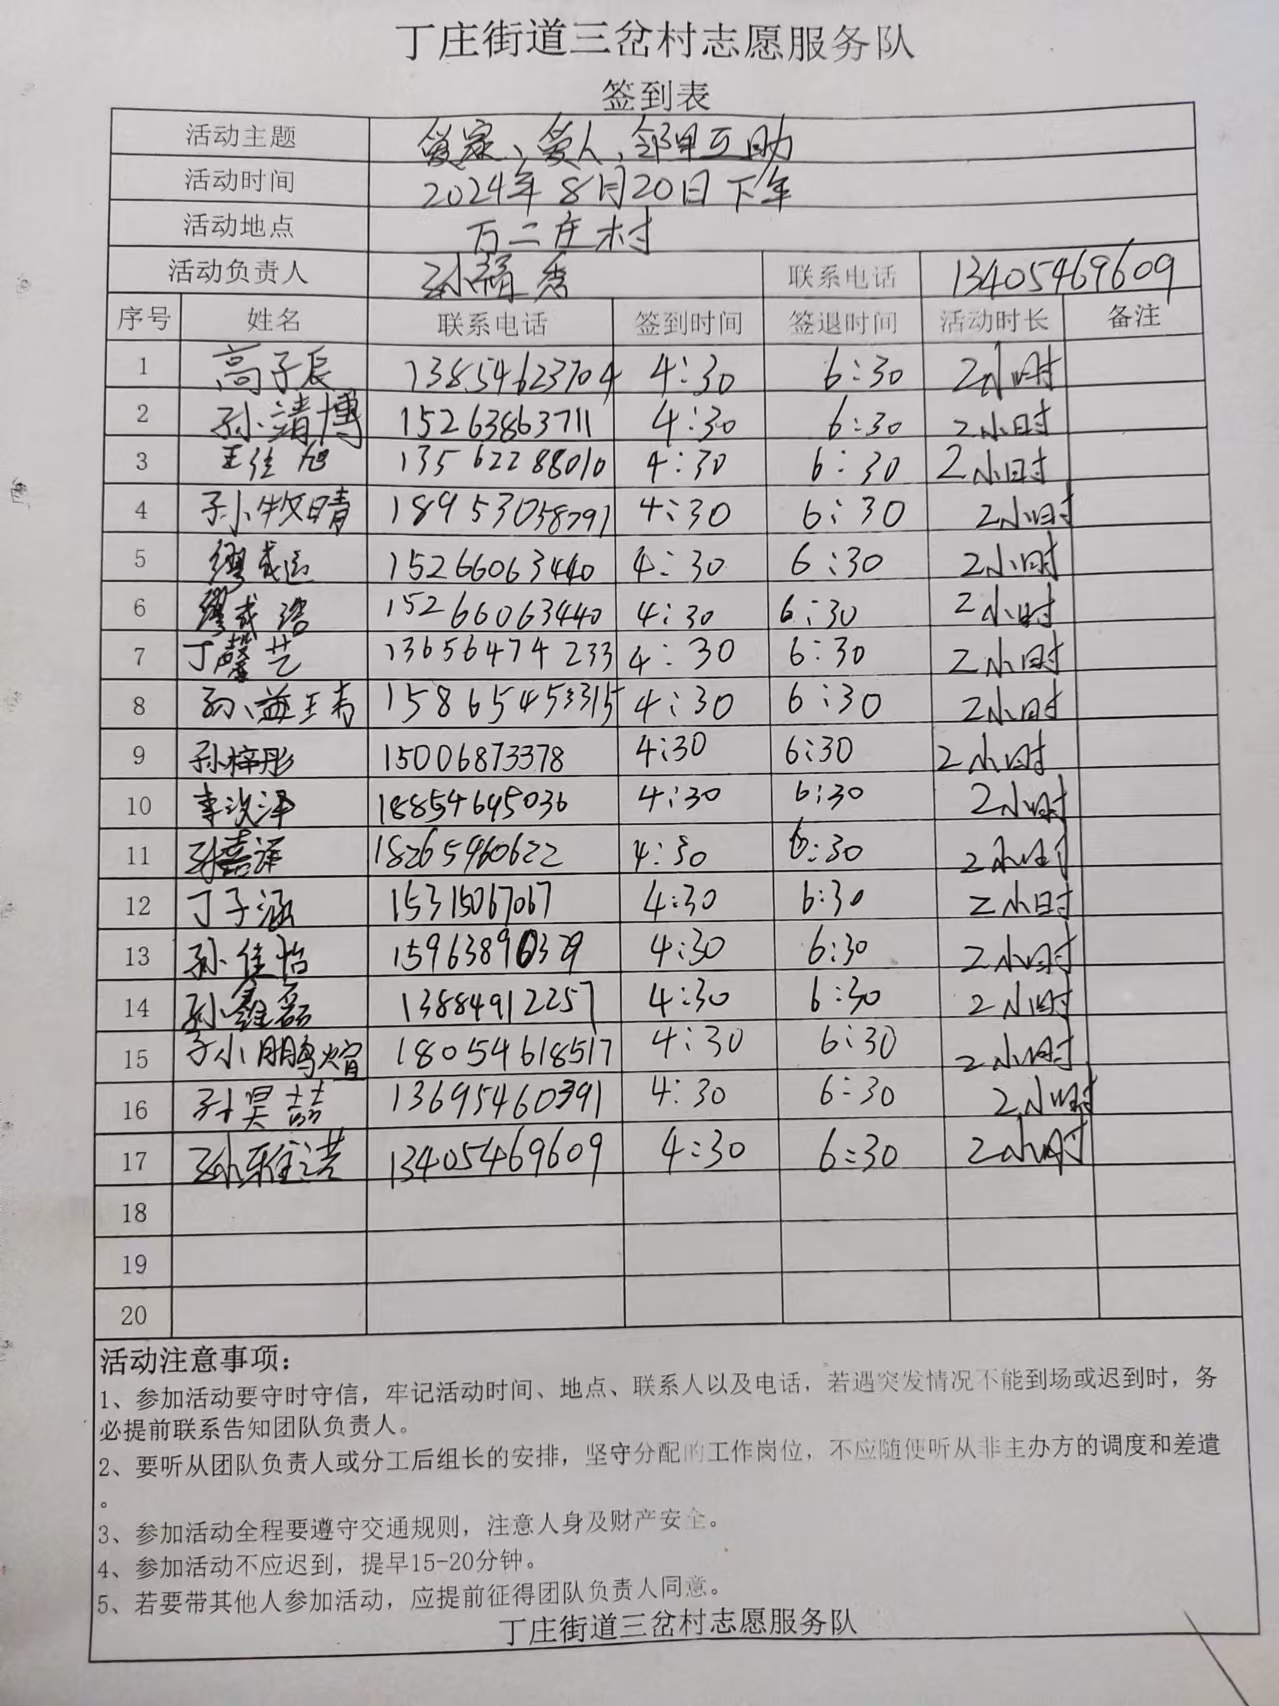 丁庄街道三岔村志愿服务队
签到表
活动主题 爱家、爱人、邻里互助
活动时间 2024年8月20日下午
活动地点 万二庄村
活动负责人 孙福秀 联系电话 13405469609
序号 姓名 联系电话 签到时间 签退时间 活动时长 备注
1 高子辰 13854623704 4:30 6:30 2小时
2 孙靖博 15263863711 4:30 6:30 2小时
3 王佳旭 13562288010 4:30 6:30 2小时
4 孙牧晴 18953058791 4:30 6:30 2小时
5 缪成 15266063440 4:30 6:30 2小时
6 缪成浩 15266063440 4:30 6:30 2小时
7 丁馨艺 13656474233 4:30 6:30 2小时
8 孙益 15865453315 4:30 6:30 2小时
9 孙梓彤 15006873378 4:30 6:30 2小时
10 李沅泽 18854695036 4:30 6:30 2小时
11 孙嘉泽 18265960622 4:30 6:30 2小时
12 丁子涵 15315067067 4:30 6:30 2小时
13 孙佳怡 15963890329 4:30 6:30 2小时
14 孙鑫磊 13884912257 4:30 6:30 2小时
15 孙鹏煊 18054618517 4:30 6:30 2小时
16 孙昊喆 13695460391 4:30 6:30 2小时
17 孙雅淇 13405469609 4:30 6:30 2小时
18
19
20
活动注意事项：
1、参加活动要守时守信，牢记活动时间、地点、联系人以及电话，若遇突发情况不能到场或迟到时，务
必提前联系告知团队负责人。
2、要听从团队负责人或分工后组长的安排，坚守分配的工作岗位，不应随便听从非主办方的调度和差遣
。
3、参加活动全程要遵守交通规则，注意人身及财产安全。
4、参加活动不应迟到，提早15-20分钟。
5、若要带其他人参加活动，应提前征得团队负责人同意。
丁庄街道三岔村志愿服务队